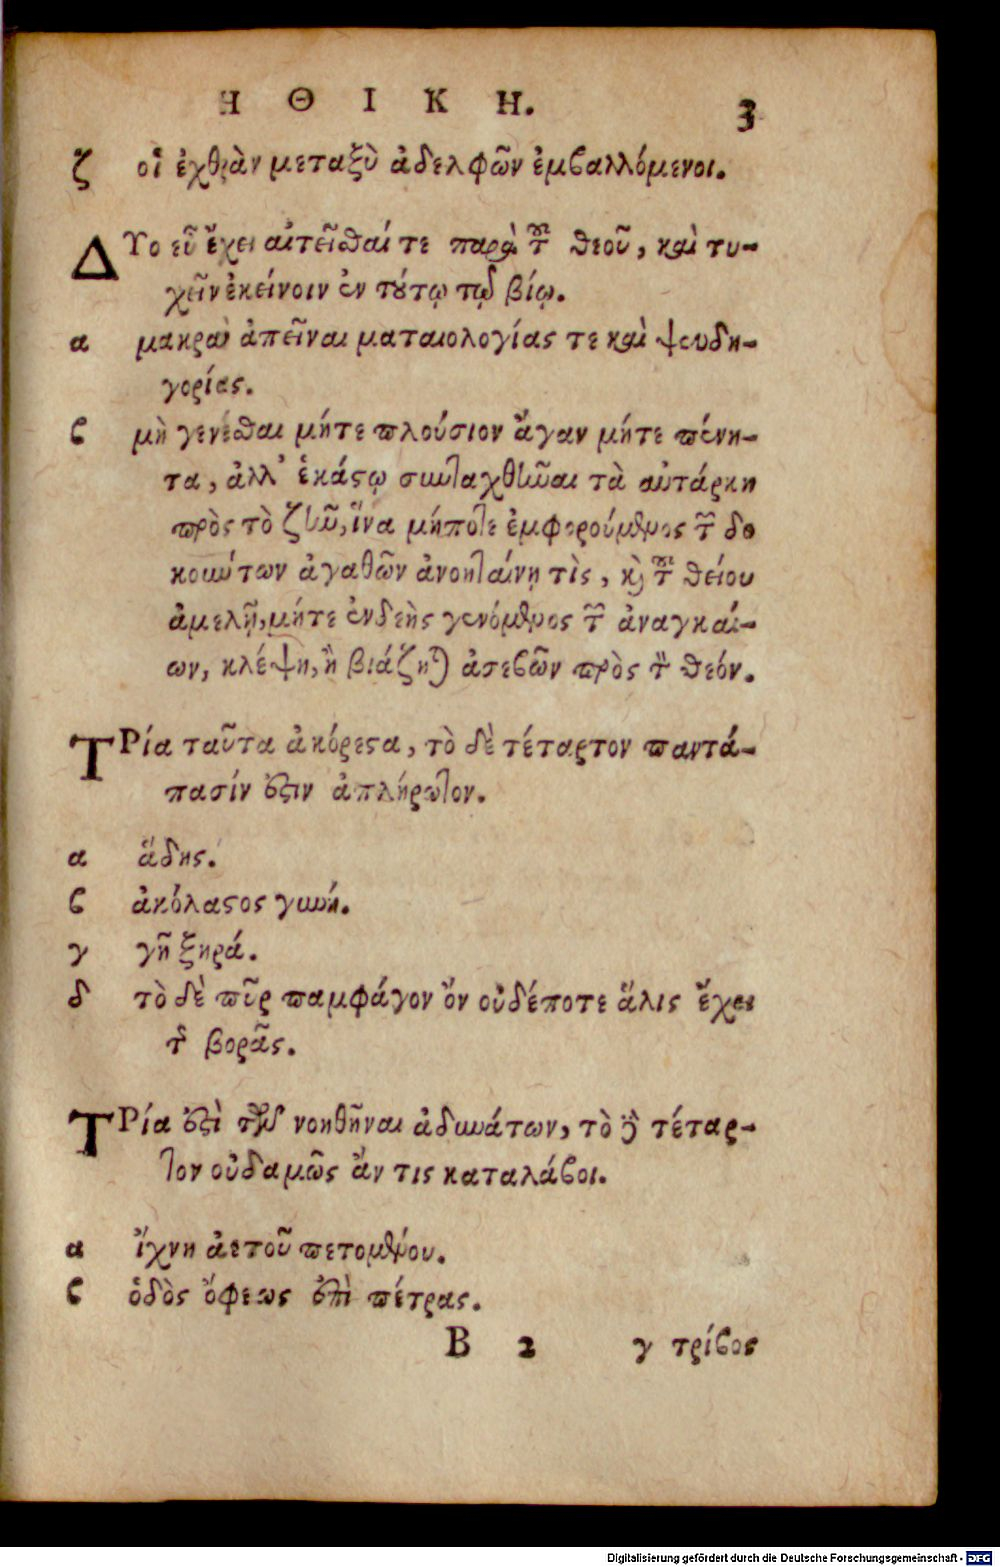 ΗΘΙΚΗ. 3
ζ οἱ ἐχθρὰν μεταξὺ ἀδελφῶν ἐμβαλλόμενοι.
ΔΥο εὖ ἔχει αἰτεῖσθαί τε παρὰ τοῦ θεοῦ, καὶ τυ-
χεῖν ἐκείνοιν ἐν τούτῳ τῷ βίῳ.
α μακρὰν ἀπεῖναι ματαιολογίας τε καὶ ψευδη-
γορίας.
ϛ μὴ γενέσθαι μήτε πλούσιον ἄγαν μήτε πένη-
τα, ἀλλ' ἑκάστῳ συνταχθῆναι τὰ αὐτάρκη
πρὸς τὸ ζῆν, ἵνα μήποτε ἐμφορούμενος τῶν δο
κούντων ἀγαθῶν ἀνοηταίνῃ τὶς, καὶ τοῦ θείου
ἀμελῇ, μήτε ἐνδεὴς γενόμενος τῶν ἀναγκαί-
ων, κλέψῃ, ἢ βιάζηται ἀσεβῶν πρὸς τὸν θεόν.
ΤΡία ταῦτα ἀκόρεστα, τὸ δὲ τέταρτον παντά-
πασίν ἐστιν ἀπλήρωτον.
α ᾅδης.
ϛ ἀκόλαστος γυνή.
γ γῆ ξηρά.
δ τὸ δὲ πῦρ παμφάγον ὂν οὐδέποτε ἅλις ἔχει
τῆς βορᾶς.
ΤΡία ἐστὶ τῶν νοηθῆναι ἀδυνάτων, τὸ δὲ τέταρ-
τον οὐδαμῶς ἄν τις καταλάβοι.
α ἴχνη ἀετοῦ πετομένου.
ϛ ὁδὸς ὄφεως ἐπὶ πέτρας.
Β 2 γ τρίβος
Digitalisierung gefördert durch die Deutsche Forschungsgemeinschaft - DFG